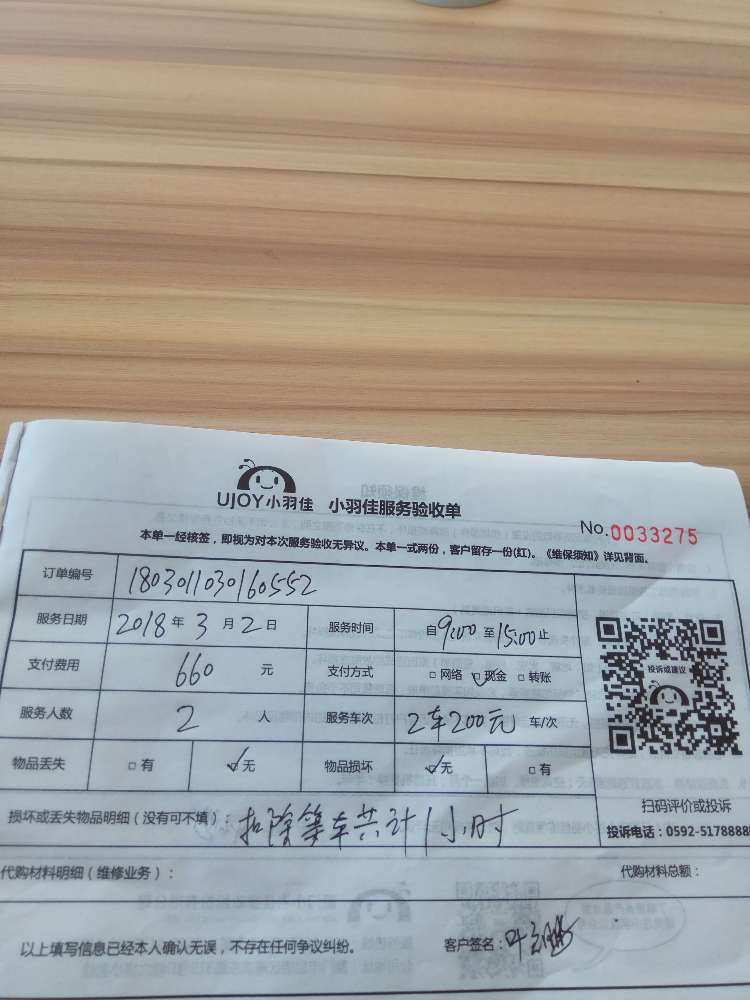 UJOY小羽佳 小羽佳服务验收单
No.0033275
本单一经核签，即视为对本次服务验收无异议。本单一式两份，客户留存一份(红)。《维保须知》详见背面。
订单编号 180301103016​0552
服务日期 2018年3月2日 服务时间 自9:00至15:00止
支付费用 660 元 支付方式 □网络 ☑现金 □转账
服务人数 2 人 服务车次 2车200元 车/次
投诉或建议
物品丢失 □有 ☑无 物品损坏 ☑无 □有
扫码评价或投诉
损坏或丢失物品明细（没有可不填）：扣除等车共计1小时
投诉电话：0592-5178888
代购材料明细（维修业务）： 代购材料总额：
以上填写信息已经本人确认无误，不存在任何争议纠纷。 客户签名：叶